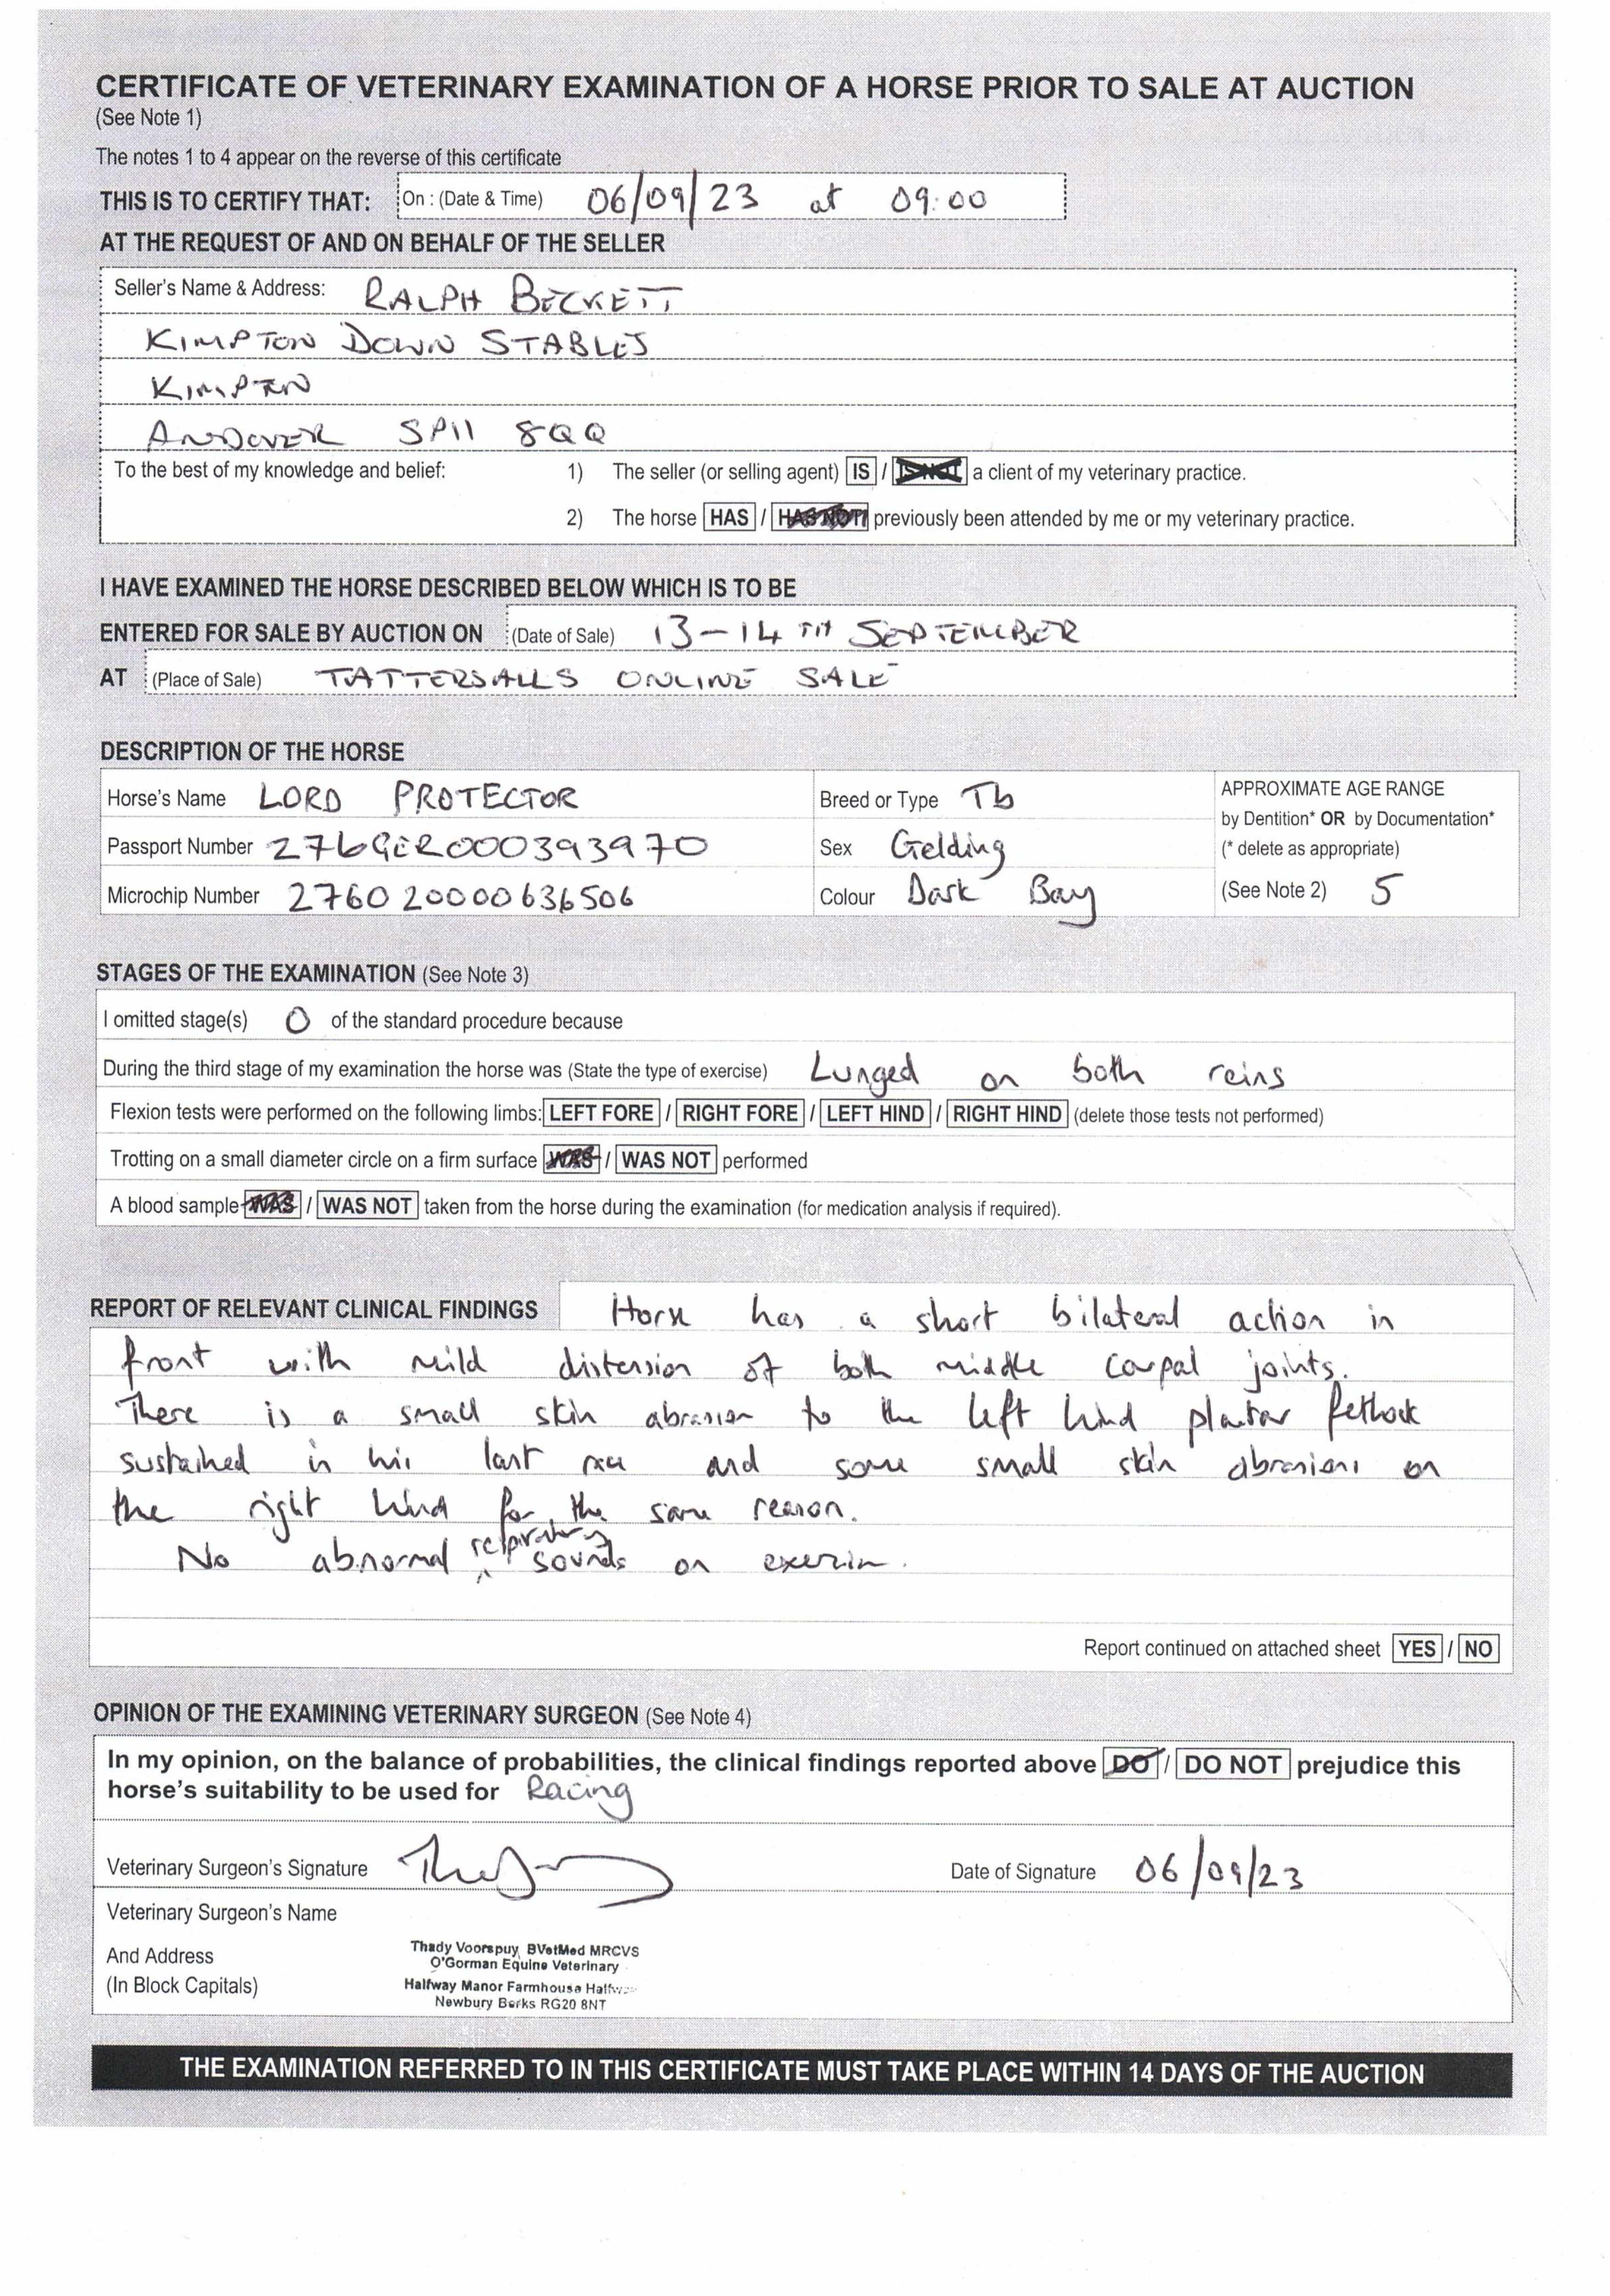 CERTIFICATE OF VETERINARY EXAMINATION OF A HORSE PRIOR TO SALE AT AUCTION
(See Note 1)
The notes 1 to 4 appear on the reverse of this certificate
THIS IS TO CERTIFY THAT: On : (Date & Time) 06/09/23 at 09:00
AT THE REQUEST OF AND ON BEHALF OF THE SELLER
Seller's Name & Address: RALPH BECKETT
KIMPTON DOWN STABLES
KIMPTON
ANDOVER SP11 8QQ
To the best of my knowledge and belief: 1) The seller (or selling agent) IS / IS NOT a client of my veterinary practice.
2) The horse HAS / HAS NOT previously been attended by me or my veterinary practice.
I HAVE EXAMINED THE HORSE DESCRIBED BELOW WHICH IS TO BE
ENTERED FOR SALE BY AUCTION ON (Date of Sale) 13-14TH SEPTEMBER
AT (Place of Sale) TATTERSALLS ONLINE SALE
DESCRIPTION OF THE HORSE
Horse's Name LORD PROTECTOR Breed or Type Tb APPROXIMATE AGE RANGE
by Dentition* OR by Documentation*
Passport Number 276GER000393970 Sex Gelding (* delete as appropriate)
Microchip Number 276020000636506 Colour Dark Bay (See Note 2) 5
STAGES OF THE EXAMINATION (See Note 3)
I omitted stage(s) 0 of the standard procedure because
During the third stage of my examination the horse was (State the type of exercise) Lunged on both reins
Flexion tests were performed on the following limbs: LEFT FORE / RIGHT FORE / LEFT HIND / RIGHT HIND (delete those tests not performed)
Trotting on a small diameter circle on a firm surface WAS / WAS NOT performed
A blood sample WAS / WAS NOT taken from the horse during the examination (for medication analysis if required).
REPORT OF RELEVANT CLINICAL FINDINGS Horse has a short bilateral action in
front with mild distension of both middle carpal joints.
There is a small skin abrasion to the left hind plantar fetlock
sustained in his last race and some small skin abrasions on
the right hind for the same reason.
No abnormal respiratory sounds on exercise.
Report continued on attached sheet YES / NO
OPINION OF THE EXAMINING VETERINARY SURGEON (See Note 4)
In my opinion, on the balance of probabilities, the clinical findings reported above DO / DO NOT prejudice this
horse's suitability to be used for Racing
Veterinary Surgeon's Signature Date of Signature 06/09/23
Veterinary Surgeon's Name
And Address
(In Block Capitals)
Thady Voorspuy, BVetMed MRCVS
O'Gorman Equine Veterinary
Halfway Manor Farmhouse
Newbury Berks RG20 8NT
THE EXAMINATION REFERRED TO IN THIS CERTIFICATE MUST TAKE PLACE WITHIN 14 DAYS OF THE AUCTION